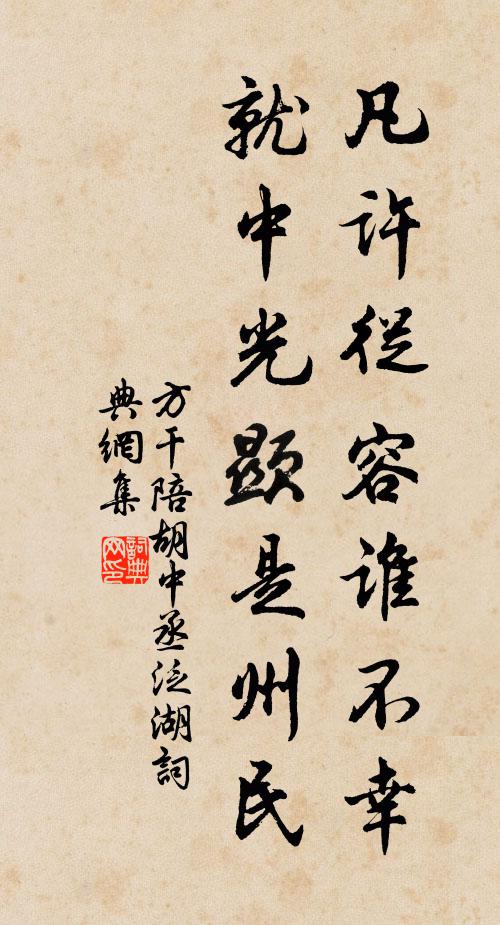 凡許從容誰不幸
就中光顯是州民
方干陪胡中丞泛湖詞
典網集
詞典網印